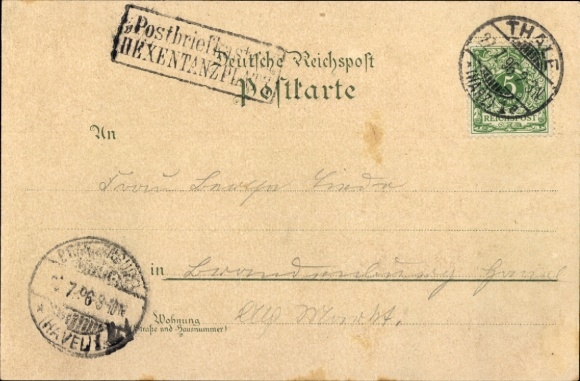 Postbriefkasten
HEXENTANZPLATZ
Deutsche Reichspost
Postkarte
THALE
(HARZ)
5
REICHSPOST
An
Frau
in Brandenburg Havel
Wohnung
(Straße und Hausnummer)
BRANDENBURG
7.96.8-
(HAVEL)